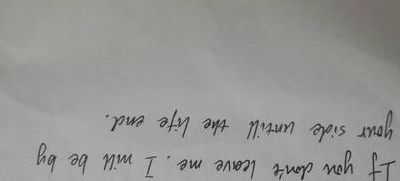 If you don't leave me, I will be by
your side untill the life end.